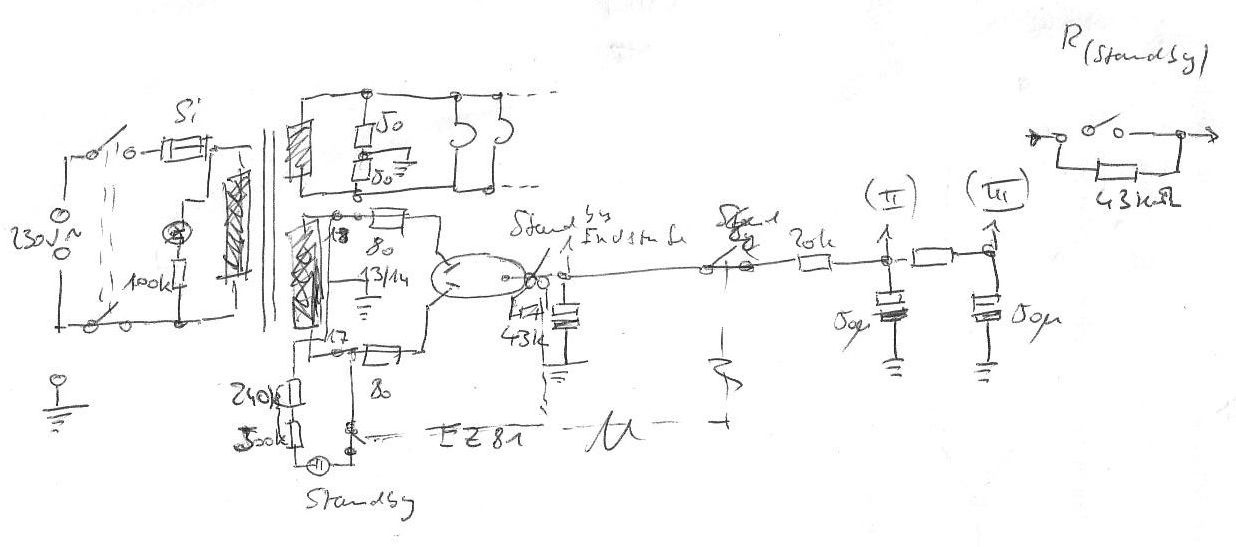 R(Standby)
Si
50
50
230V~
100k
18
80
13/14
17
80
Standby
Endstufe
43k
Stand
by
20k
(II)
(III)
43kΩ
50µ
50µ
240k
300k
EZ81
Standby